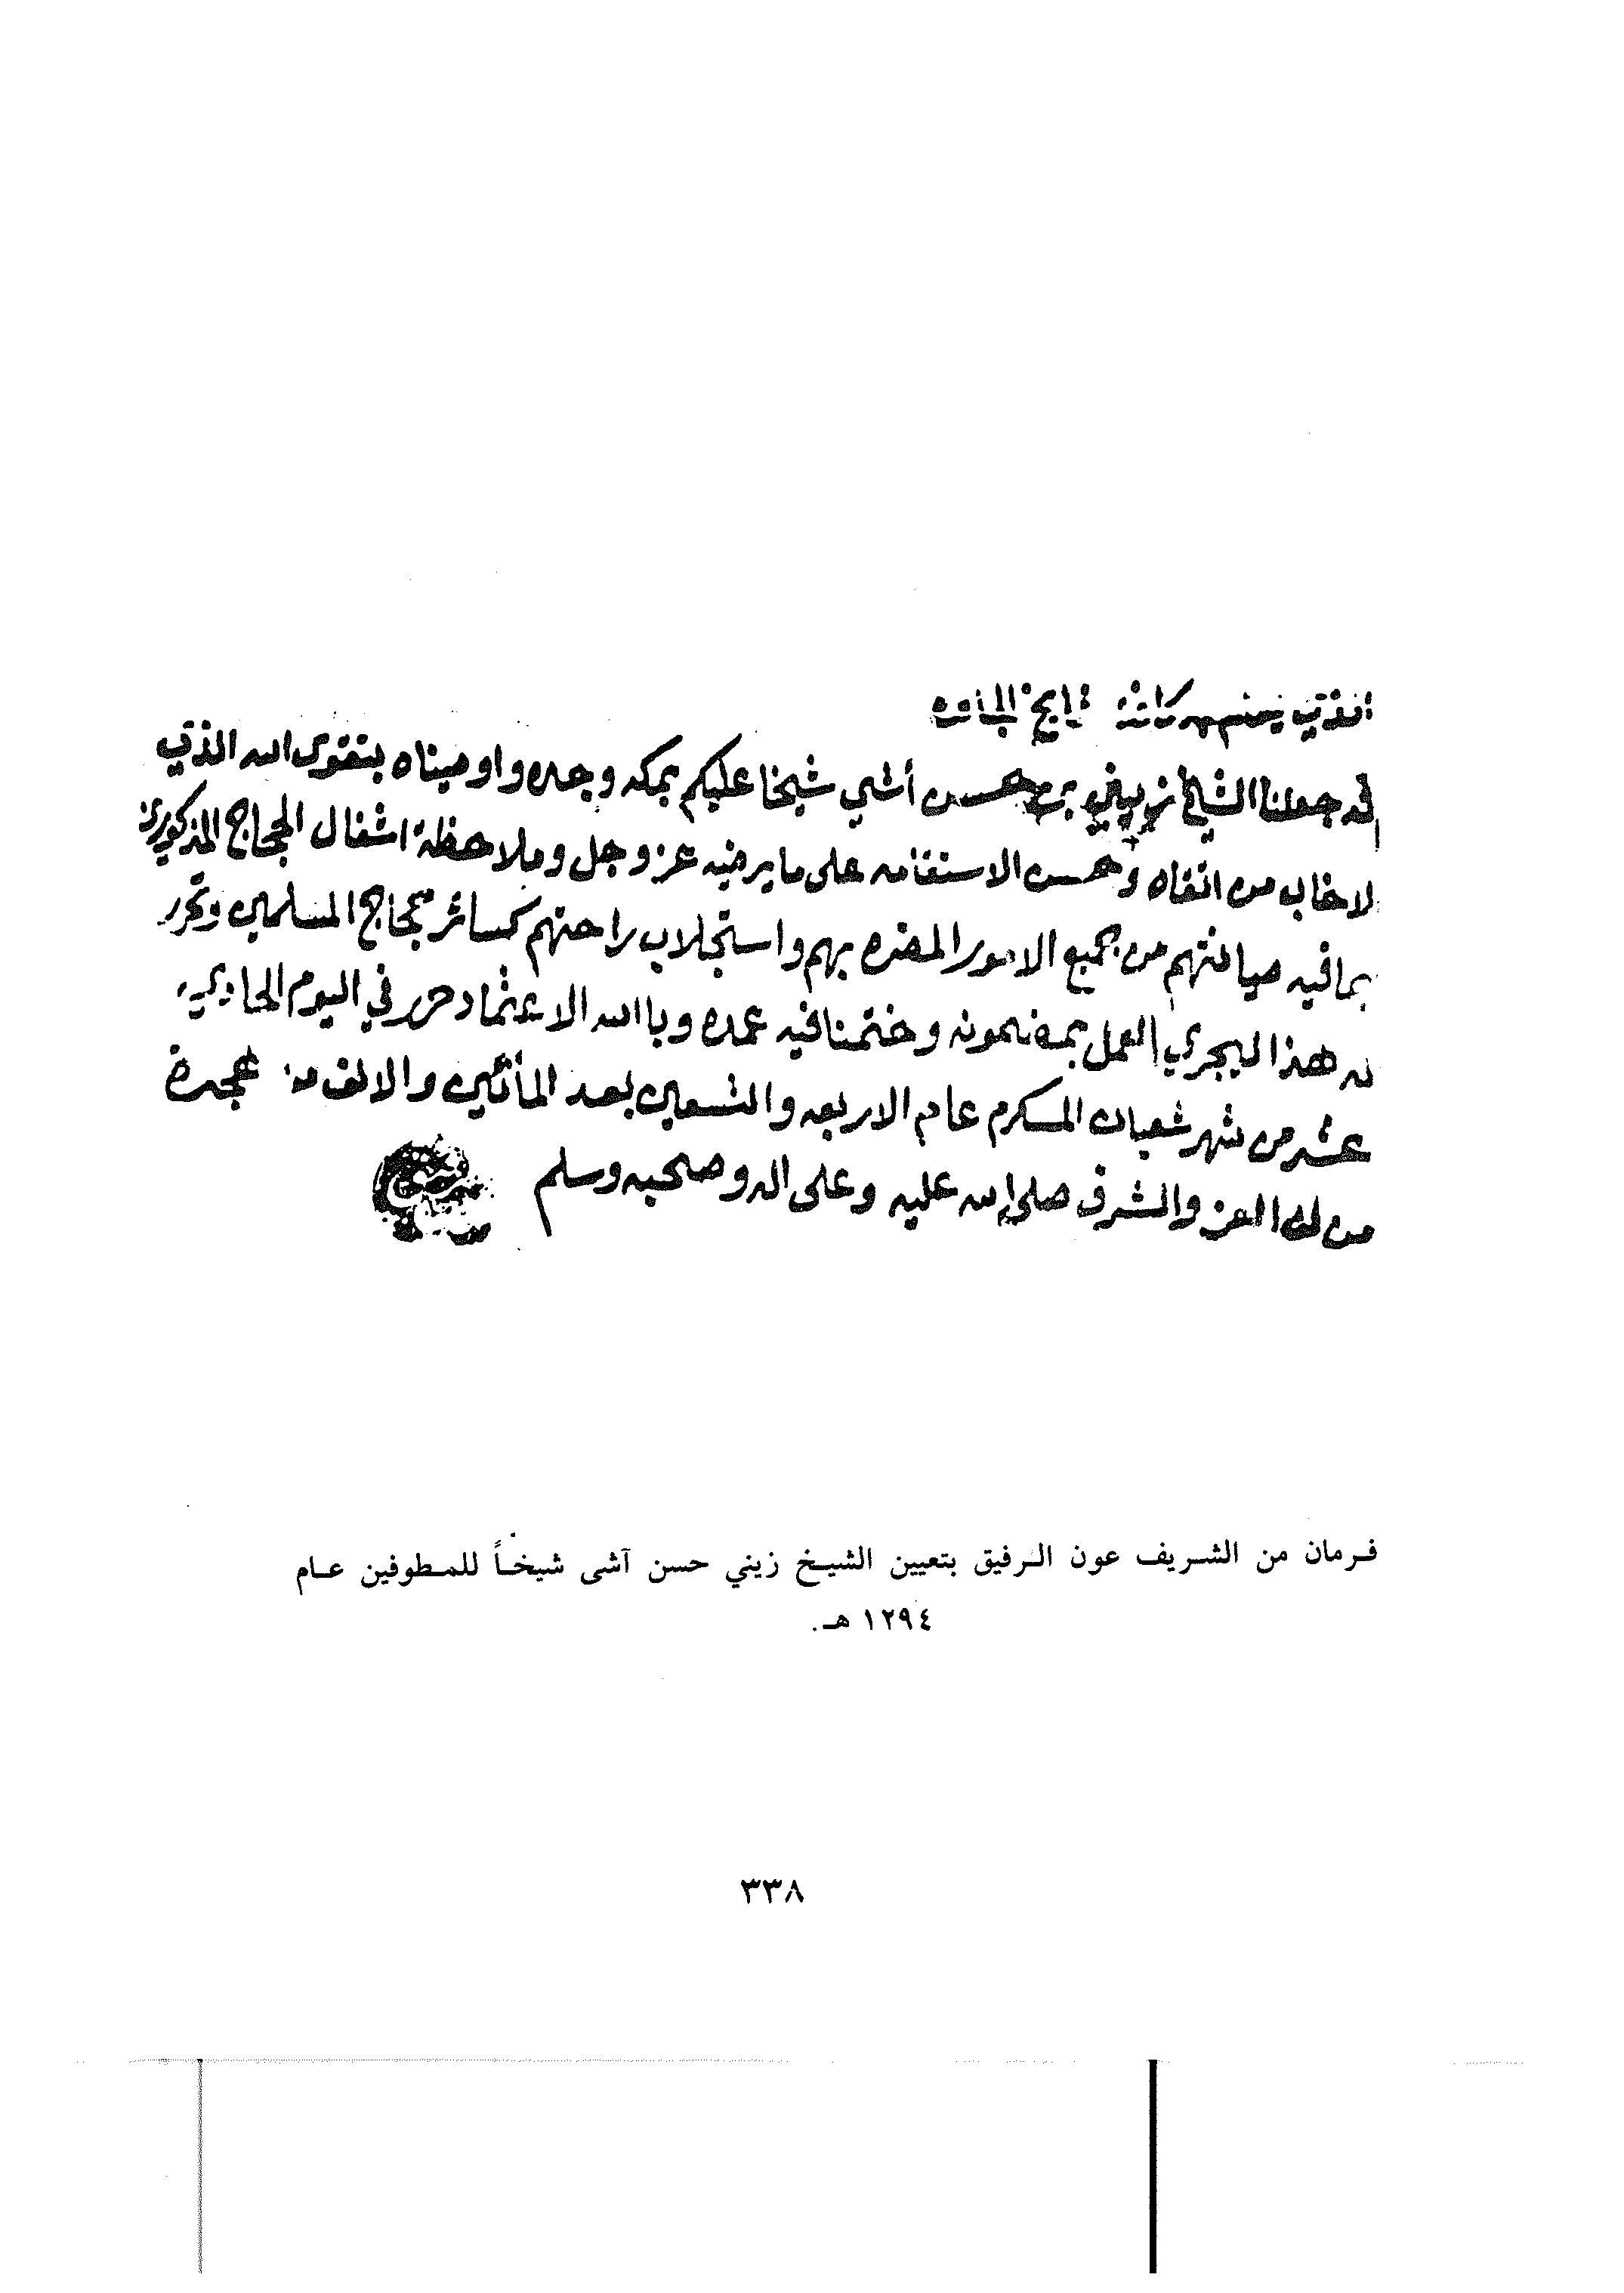 قد جعلنا الشيخ زيني بن حسن أشي شيخا عليكم بمكه وجده واوصيناه بتقوى الله الذي
لاخاب من اتقاه وحسن الاستقامه على ما يرضيه عز وجل وملاحظة اشغال الحجاج المذكورين
بما فيه صيانتهم من جميع الامور المضره بهم واستجلاب راحتهم كسائر حجاج المسلمين وتحرر
له هذا ليجري العمل بمضمونه وختمنا فيه عمده وباالله الاعتماد حرر في اليوم الحادي
عشر من شهر شعبان المكرم عام الاربعه والتسعين بعد المأئتين والالف من هجرة
من له العز والشرف صلى الله عليه وعلى اله وصحبه وسلم
فرمان من الشريف عون الرفيق بتعيين الشيخ زيني حسن آشى شيخاً للمطوفين عام
١٢٩٤ هـ.
٣٣٨